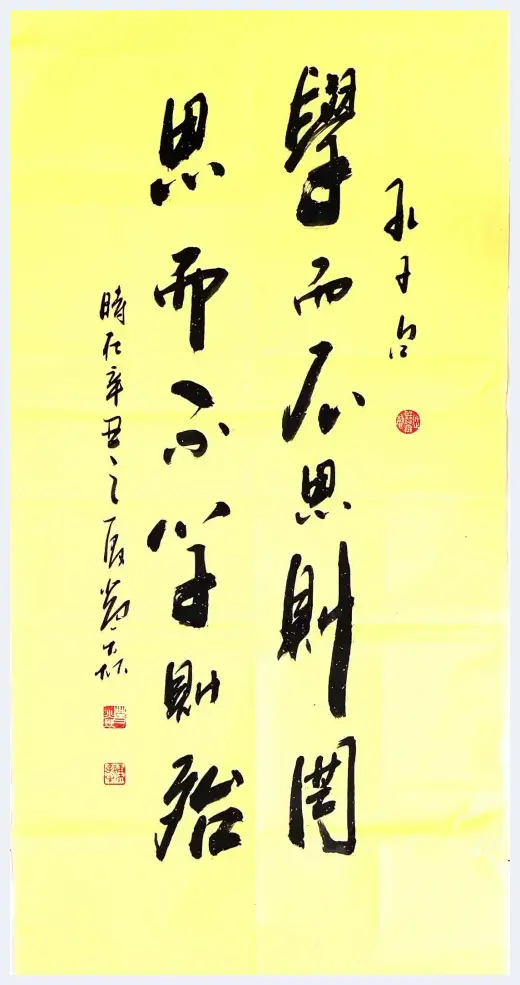 孔子句
學而不思則罔
思而不学則殆
時在辛丑之夏